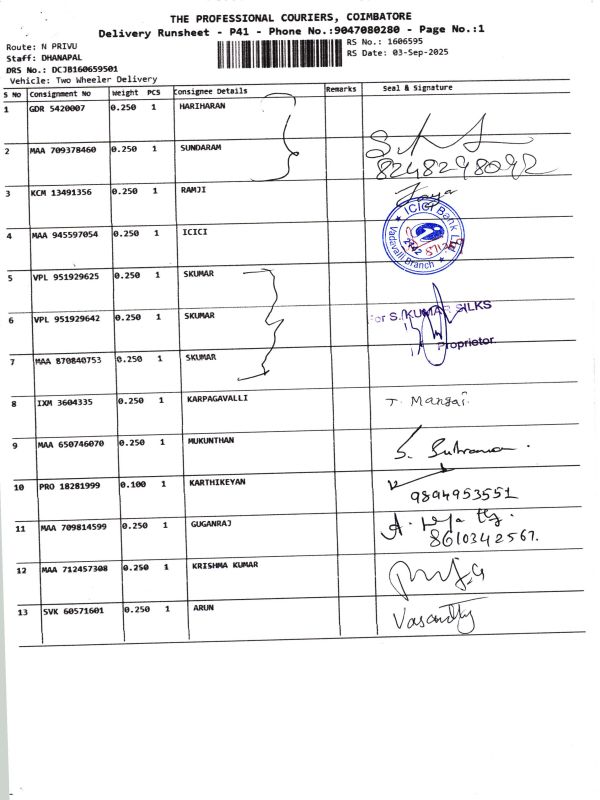 THE PROFESSIONAL COURIERS, COIMBATORE
Delivery Runsheet - P41 - Phone No.:9047080280 - Page No.:1
Route: N PRIVU
RS No.: 1606595
Staff: DHANAPAL
RS Date: 03-Sep-2025
DRS No.: DCJB160659501
Vehicle: Two Wheeler Delivery
S No Consignment No Weight PCS Consignee Details Remarks Seal & Signature
1 GDR 5420007 0.250 1 HARIHARAN
2 MAA 709378460 0.250 1 SUNDARAM
8248298092
3 KCM 13491356 0.250 1 RAMJI Jaya
4 MAA 945597054 0.250 1 ICICI
ICICI Bank Ltd
Vadavalli Branch
5 VPL 951929625 0.250 1 SKUMAR
6 VPL 951929642 0.250 1 SKUMAR
For S. KUMAR SILKS
Proprietor
7 MAA 870840753 0.250 1 SKUMAR
8 IXM 3604335 0.250 1 KARPAGAVALLI T. Mangai
9 MAA 650746070 0.250 1 MUKUNTHAN
10 PRO 18281999 0.100 1 KARTHIKEYAN 9894953551
11 MAA 709814599 0.250 1 GUGANRAJ
8610342567.
12 MAA 712457308 0.250 1 KRISHMA KUMAR
13 SVK 60571601 0.250 1 ARUN Vasanthy